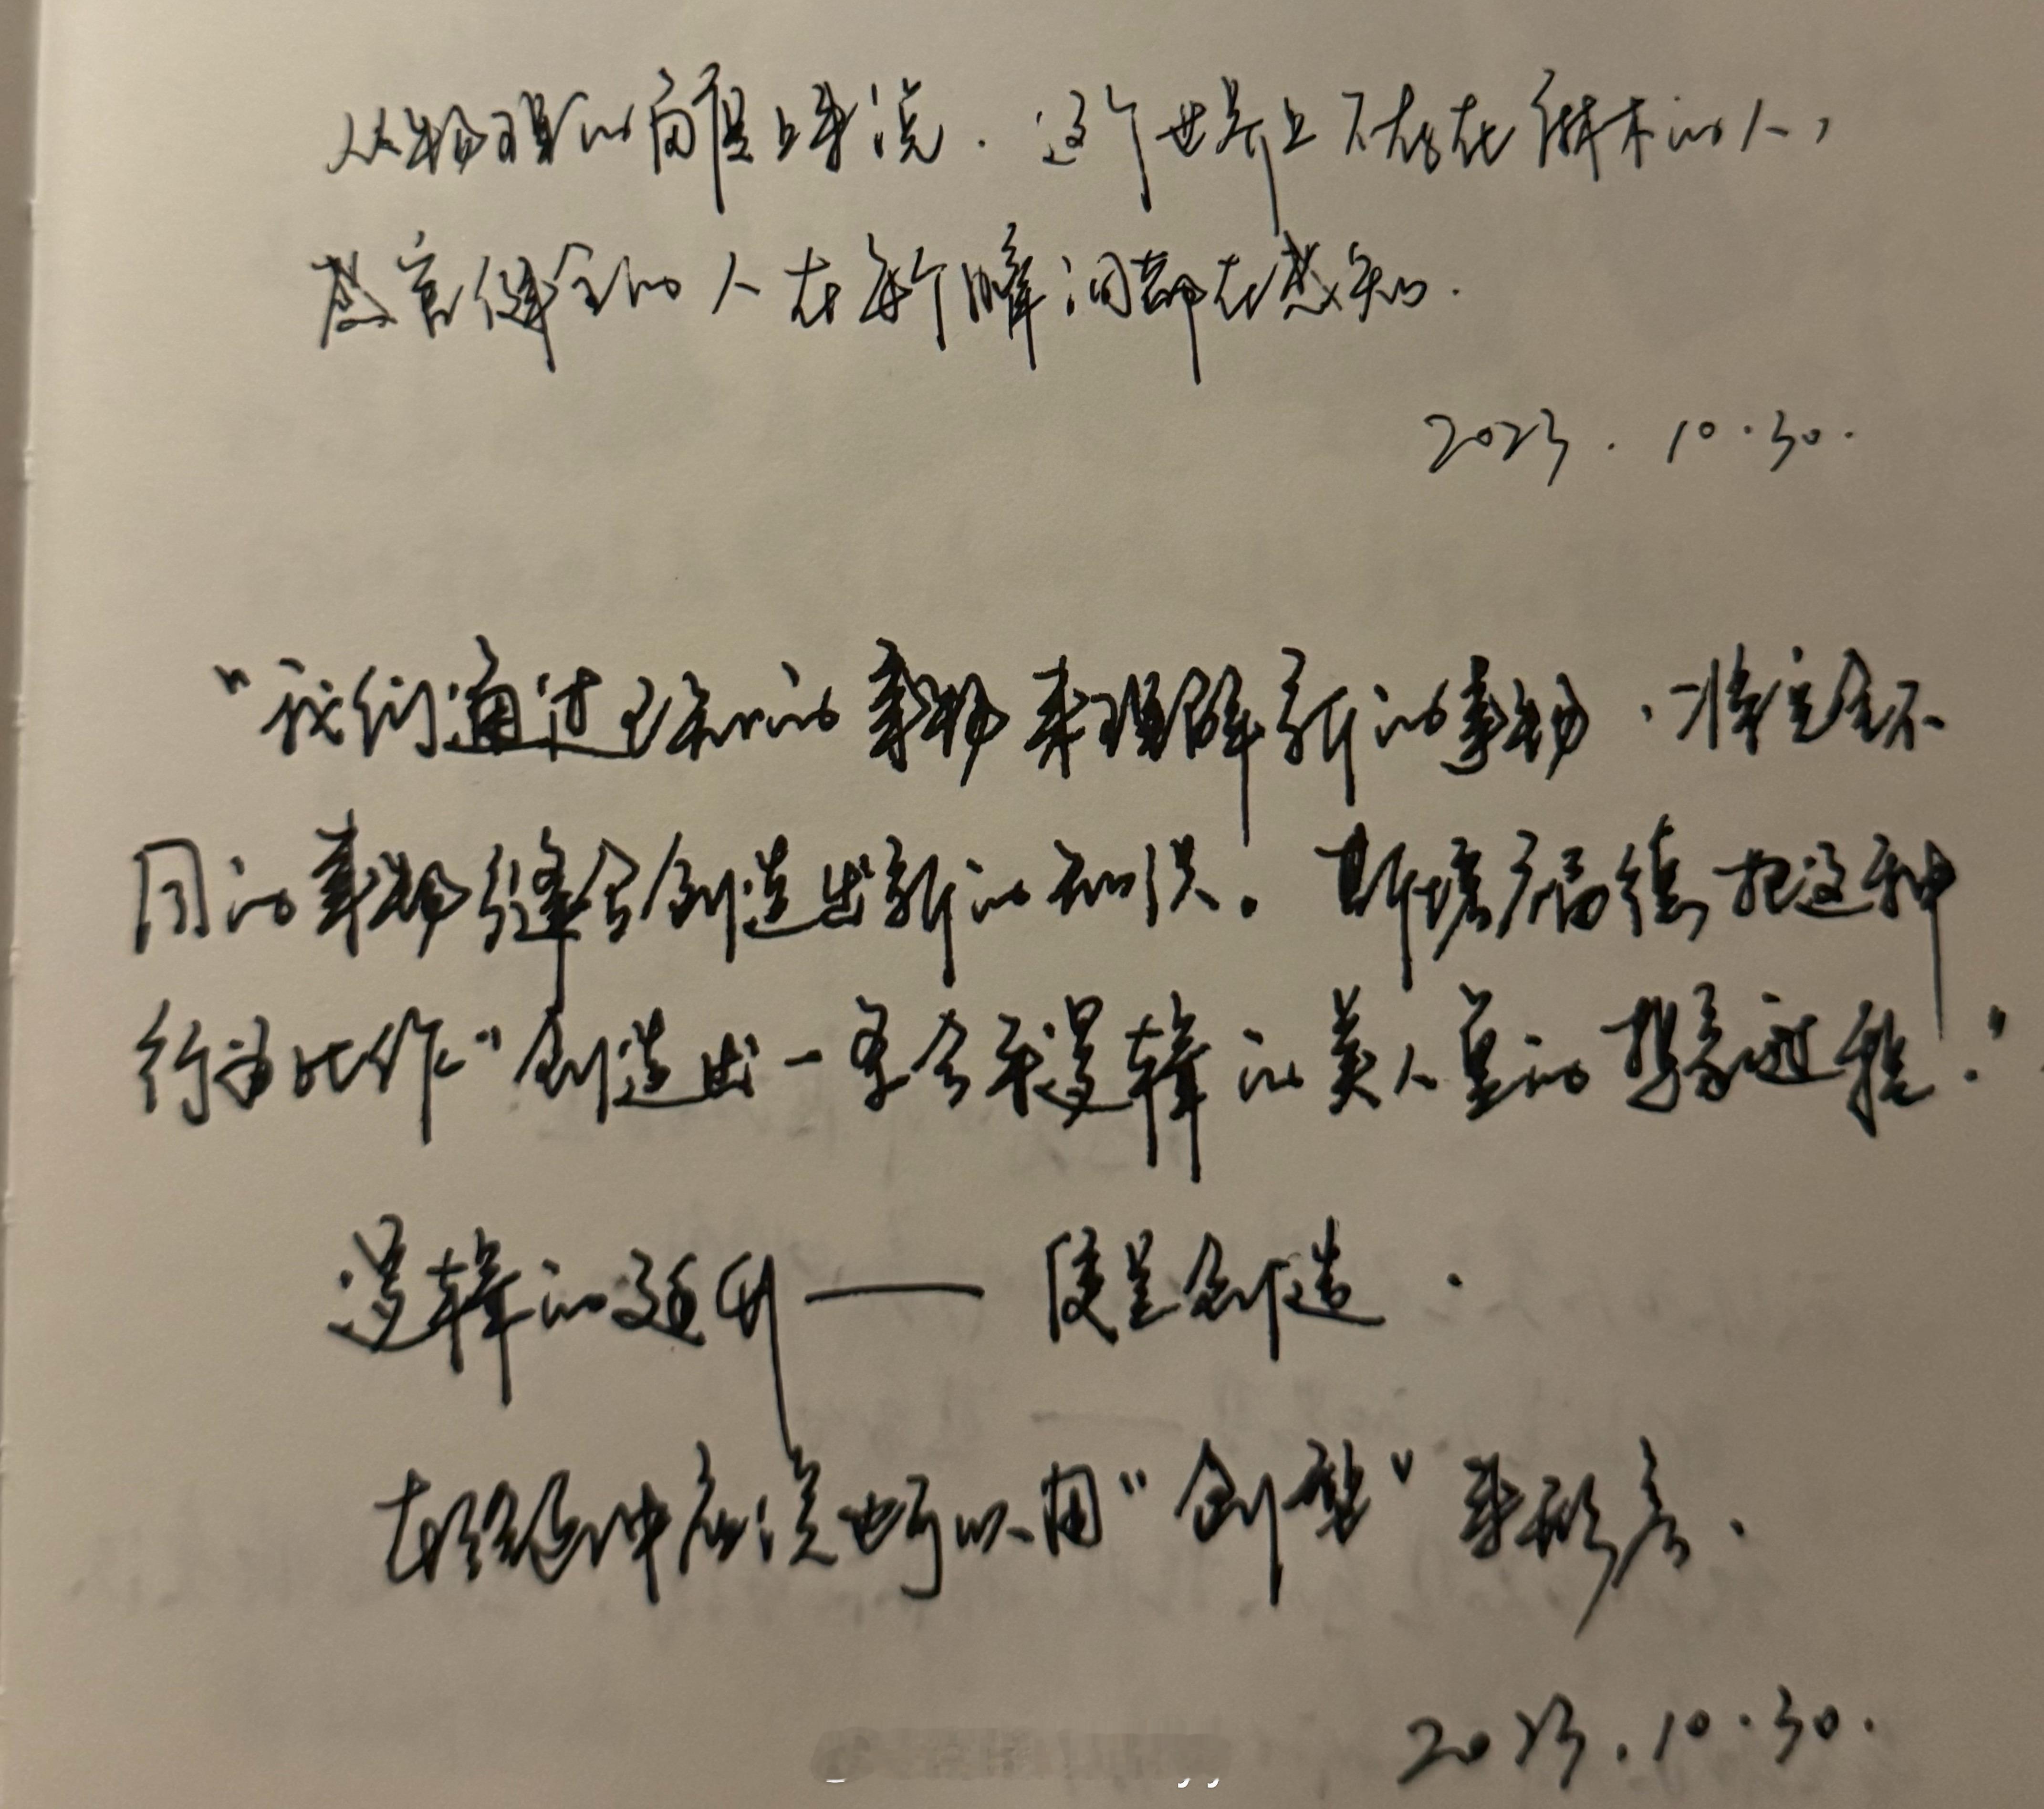 从物理的角度上来说．这个世界上不存在麻木的人，
感官健全的人在每个瞬间都在感知．
2023．10．30．
"我们通过已知的事物来理解新的事物，将完全不
同的事物缝合创造出新的知识。斯塔福德把这种
行为比作"创造出一条合乎逻辑的美人鱼的想象过程．"
逻辑的延伸——便是创造．
在经延伸应该也可以用"创造"来形容．
2023．10．30．